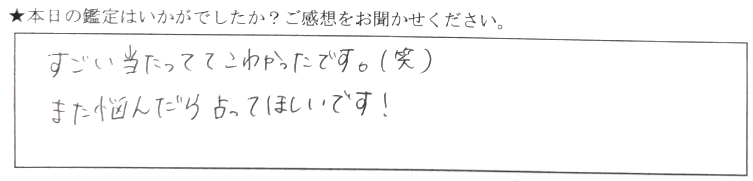 ★本日の鑑定はいかがでしたか？ご感想をお聞かせください。
すごい当たっててこわかったです。(笑)
また悩んだら占ってほしいです！